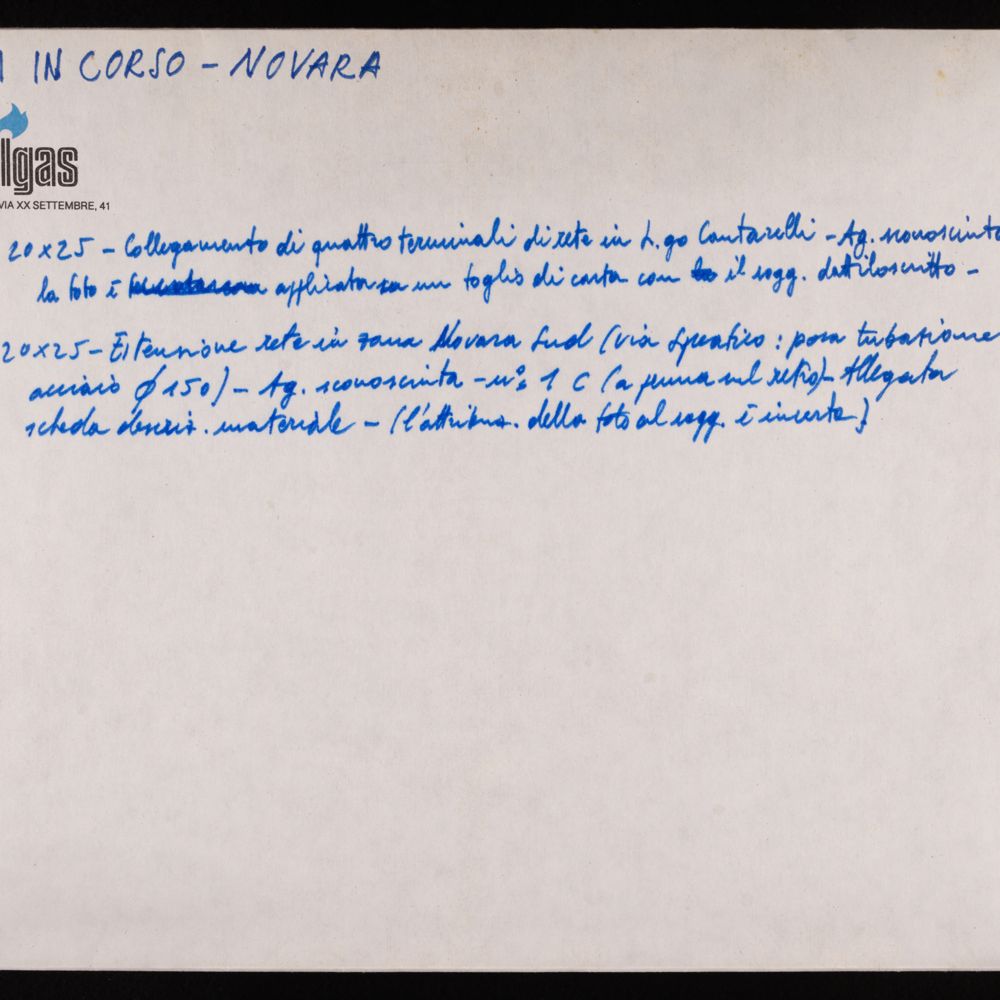 IN CORSO - NOVARA
lgas
VIA XX SETTEMBRE, 41
20x25 - Collegamento di quattro terminali di rete in L.go Cantarelli - Ag. sconosciuta
la foto è applicata su un foglio di carta con il sogg. dattiloscritto -
20x25 - Estensione rete in zona Novara Sud (via : posa tubazione
acciaio Ø 150) - Ag. sconosciuta - n° 1 C (a penna sul retro) - Allegata
scheda descriz. materiale - (l'attribuz. della foto al sogg. è incerta)